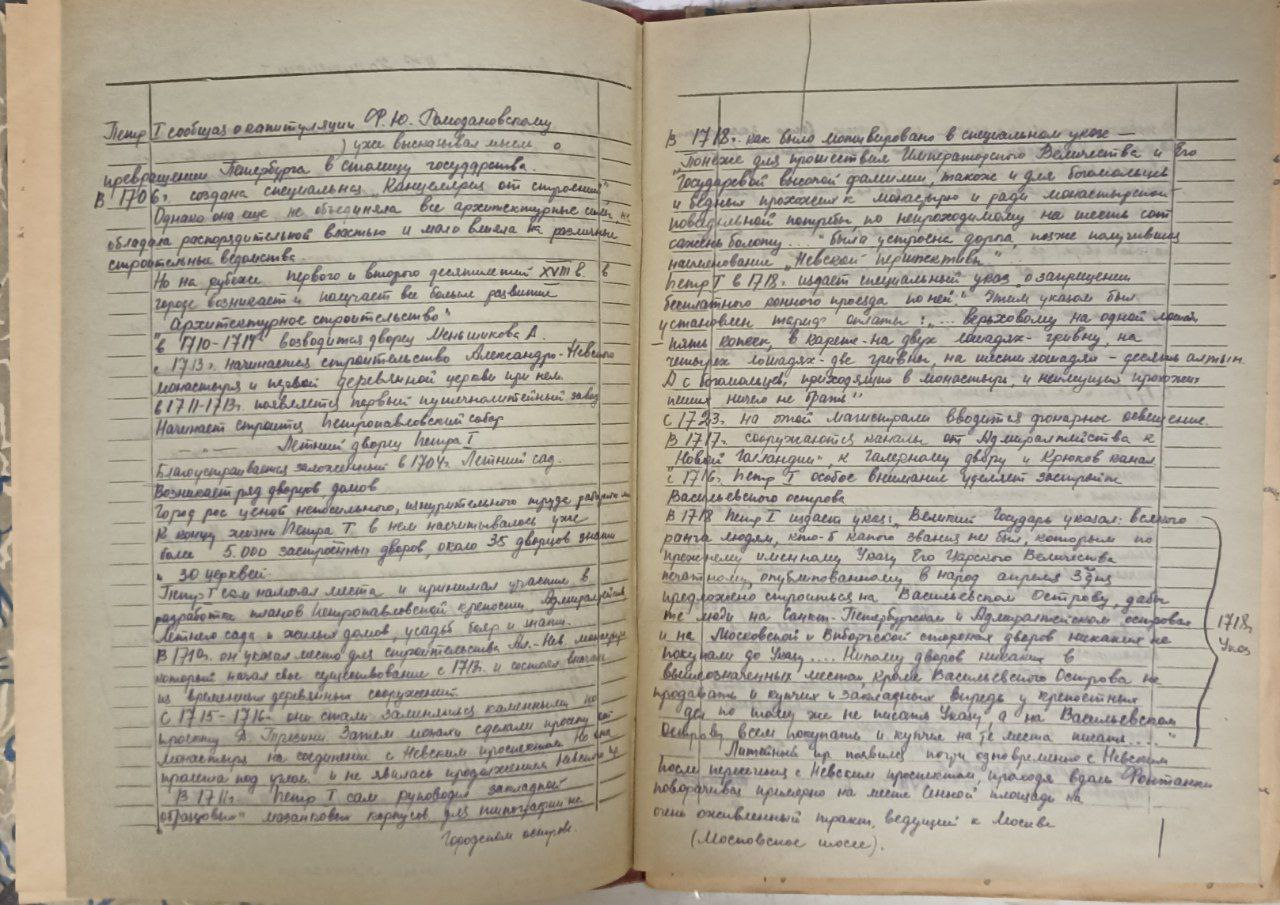 Петр I сообщая о капитуляции Ф.Ю. Ромодановскому
) уже высказывал мысль о
превращении Петербурга в столицу государства.
В 1706г. создана специальная „Канцелярия от строений"
Однако она еще не объединяла все архитектурные силы, не
обладала распорядительной властью и мало влияла на различные
строительные ведомства.
Но на рубеже первого и второго десятилетий XVIII в. в
городе возникает и получает все больше развитие
„Архитектурное строительство"
в 1710-1714г возводится дворец Меньшикова А.
с 1713г. начинается строительство Александро-Невского
монастыря и первой деревянной церкви при нем.
в 1711-1713г. появляется первый пушечнолитейный завод
Начинает строится Петропавловский собор
— „ — Летний дворец Петра I
Благоустраивается заложенный в 1704г. Летний сад.
Возникает ряд дворцов домов
Город рос ценой непосильного, изнурительного труда
К концу жизни Петра I. в нем насчитывалось уже
более 5.000 застроенных дворов, около 35 дворцов знати
и 30 церквей.
Петр I сам намечал места и принимал участие в
разработке планов Петропавловской крепости, Адмиралтейства
Летнего сада и жилых домов, усадьб бояр и знати.
В 1710г. он указал место для строительства Ал.-Нев. монастыря
который начал свое существование с 1713г. и состоял вначале
из временных деревянных сооружений.
С 1715-1716г. они стали заменяться каменными по
проекту Д. Трезини. Затем монахи сделали просеку от
монастыря на соединение с Невским проспектом. Но она
пролегла под углом и не явилась продолжением Невского пр.
В 1711г. Петр I сам руководил закладкой
„образцовых" мазанковых корпусов для типографии на
Городском острове.
В 1718г. как было мотивировано в специальном указе —
„Понеже для прошествия Императорского Величества и Его
Государевой высокой фамилии, також и для богомольцев
и бедных прохожих к монастырю и ради монастырской
повседневной потребы по непроходимому на шесть сот
сажень болоту...." была устроена дорога, позже получившая
наименование „Невской перспективы"...
Петр I в 1718г. издает специальный указ „о запрещении
бесплатного конного проезда по ней." Этим указом был
установлен тариф оплаты: „... верьховому на одной лошади
пять копеек, в карете-на двух лошадях- гривну, на
четырех лошадях-две гривны, на шести лошадях - десять алтын
А с богомольцев, приходящих в монастырь, и неимущих прохожих
пеших ничего не брать"
С 1723г. на этой магистрали вводится фонарное освещение.
В 1717г. сооружаются каналы от Адмиралтейства к
„Новой Голландии", к Галерному двору и Крюков канал
с 1716г. Петр I особое внимание уделяет застройке
Васильевского острова
В 1718 Петр I издает указ: „Великий Государь указал: всякого
ранга людям, кто-б какого звания не был, которым по
прежнему именному Указу Его Царского Величества
печатному, опубликованному в народ апреля 3 дня
предложено строиться на Васильевском Острову, дабы
те люди на Санкт-Петербургском и Адмиралтейском островах
и на Московской и Выборгской сторонах дворов никаких не
покупали до Указу.... Никому дворов никаких в
вышеозначенных местах кроме Васильевского Острова не
продавать и купчих и закладных впредь у крепостных
дел по тому же не писать Указу, а на Васильевском
Острову всем покупать и купчие на те места писать...."
1718г.
Указ
Литейный пр появился почти одновременно с Невским
После пересечения с Невским проспектом, проходя вдоль Фонтанки
поворачивал примерно на месте Сенной площади на
очень оживленный тракт, ведущий к Москве
(Московское шоссе).